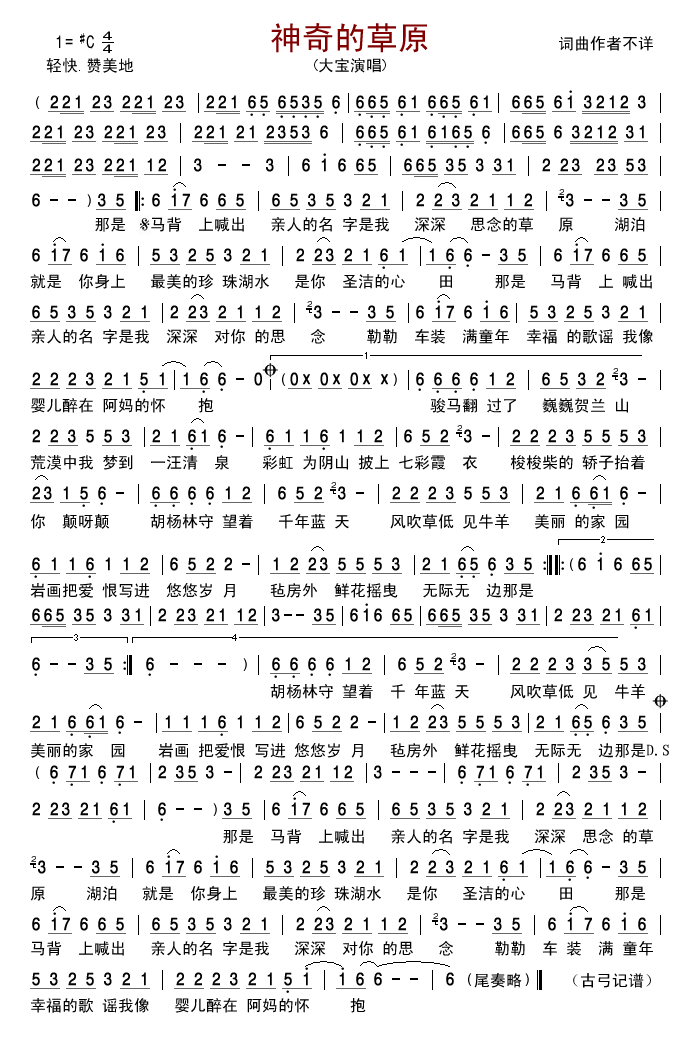 神奇的草原
1= #C 4/4
词曲作者不详
轻快. 赞美地
(大宝演唱)
( 221 23 221 23 | 221 65 6535 6 | 665 61 665 61 | 665 6i 3212 3 |
221 23 221 23 | 221 21 2353 6 | 665 61 6165 6 | 665 6 3212 31 |
221 23 221 12 | 3 - - 3 | 6 i 6 65 | 665 35 3 31 | 2 23 23 53 |
6 - - ) 35 ‖: 6 i7 6 65 | 65 35 3 21 | 2 23 2 1 12 | 3 - - 35 |
那是 𝄋马背 上喊出 亲人的名 字是我 深深 思念的草 原 湖泊
6 i7 6 i6 | 53 25 3 21 | 2 23 21 61 | 16 6 - 35 | 6 i7 6 65 |
就是 你身上 最美的珍 珠湖水 是你 圣洁的心 田 那是 马背 上 喊出
65 35 3 21 | 2 23 2 12 | 3 - - 35 | 6 i7 6 i6 | 53 25 3 21 |
亲人的名 字是我 深深 对你 的思 念 勒勒 车装 满童年 幸福 的歌谣 我像
1
22 23 21 51 | 16 6 - 0 | (0x x 0x x ) | 66 66 12 | 65 32 3 - |
婴儿醉在 阿妈的怀 抱 骏马翻 过了 巍巍贺兰 山
22 35 53 | 21 61 6 - | 61 16 1 12 | 65 2 3 - | 22 23 5 53 |
荒漠中我 梦到 一汪清 泉 彩虹 为阴山 披上 七彩霞 衣 梭梭柴的 轿子抬着
23 15 6 - | 66 66 12 | 65 2 3 - | 22 23 5 53 | 21 661 6 - |
你 颠呀颠 胡杨林守 望着 千年蓝 天 风吹草低 见牛羊 美丽 的家 园
2
61 16 1 12 | 65 22 - | 12 23 5 53 | 21 65 6 35 :‖: (6 i 6 65 |
岩画把爱 恨写进 悠悠岁 月 毡房外 鲜花摇曳 无际无 边那是
665 35 3 31 | 2 23 21 12 | 3 - - 35 | 6i6 65 | 665 35 3 31 | 2 23 21 61 |
3 4
6 - - 35 :‖ 6 - - ) | 66 66 12 | 65 2 3 - | 22 23 35 53 |
胡杨林守 望着 千 年蓝 天 风吹草低 见 牛羊
21 661 6 - | 11 16 1 12 | 65 22 - | 12 23 5 53 | 21 65 6 35 |
美丽的家 园 岩画 把爱恨 写进 悠悠岁 月 毡房外 鲜花摇曳 无际无 边那是D.S
( 6 71 6 71 | 2 35 3 - | 2 23 21 12 | 3 - - - | 6 71 6 71 | 2 35 3 - |
2 23 21 61 | 6 - - ) 35 | 6 i7 6 65 | 65 35 3 21 | 2 23 2 1 12 |
那是 马背 上喊出 亲人的名 字是我 深深 思念 的草
3 - - 35 | 6 i7 6 i6 | 53 25 3 21 | 2 23 21 61 | 16 6 - 35 |
原 湖泊 就是 你身上 最美的珍 珠湖水 是你 圣洁的心 田 那是
6 i7 6 65 | 65 35 3 21 | 2 23 2 1 12 | 3 - - 35 | 6 i7 6 i6 |
马背 上喊出 亲人的名 字是我 深深 对你 的思 念 勒勒 车 装 满 童年
53 25 3 21 | 22 23 21 5i | i6 6 - - | 6 (尾奏略) ‖ (古弓记谱)
幸福的歌 谣我像 婴儿醉在 阿妈的怀 抱